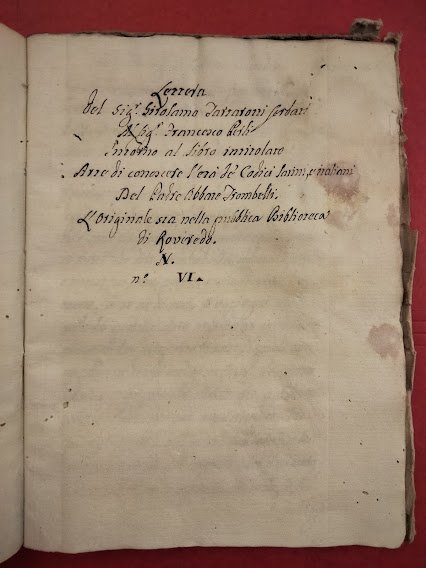 Lettera
Del Sig.r Girolamo Tartarotti Serbati
Al Sig.r Francesco
Intorno al libro intitolato
Arte di conoscere l'età de' Codici latini, e italiani
Del Padre Abbate Trombelli.
L'Originale sta nella pubblica Biblioteca
di Roveredo.
N.
n.o VI.